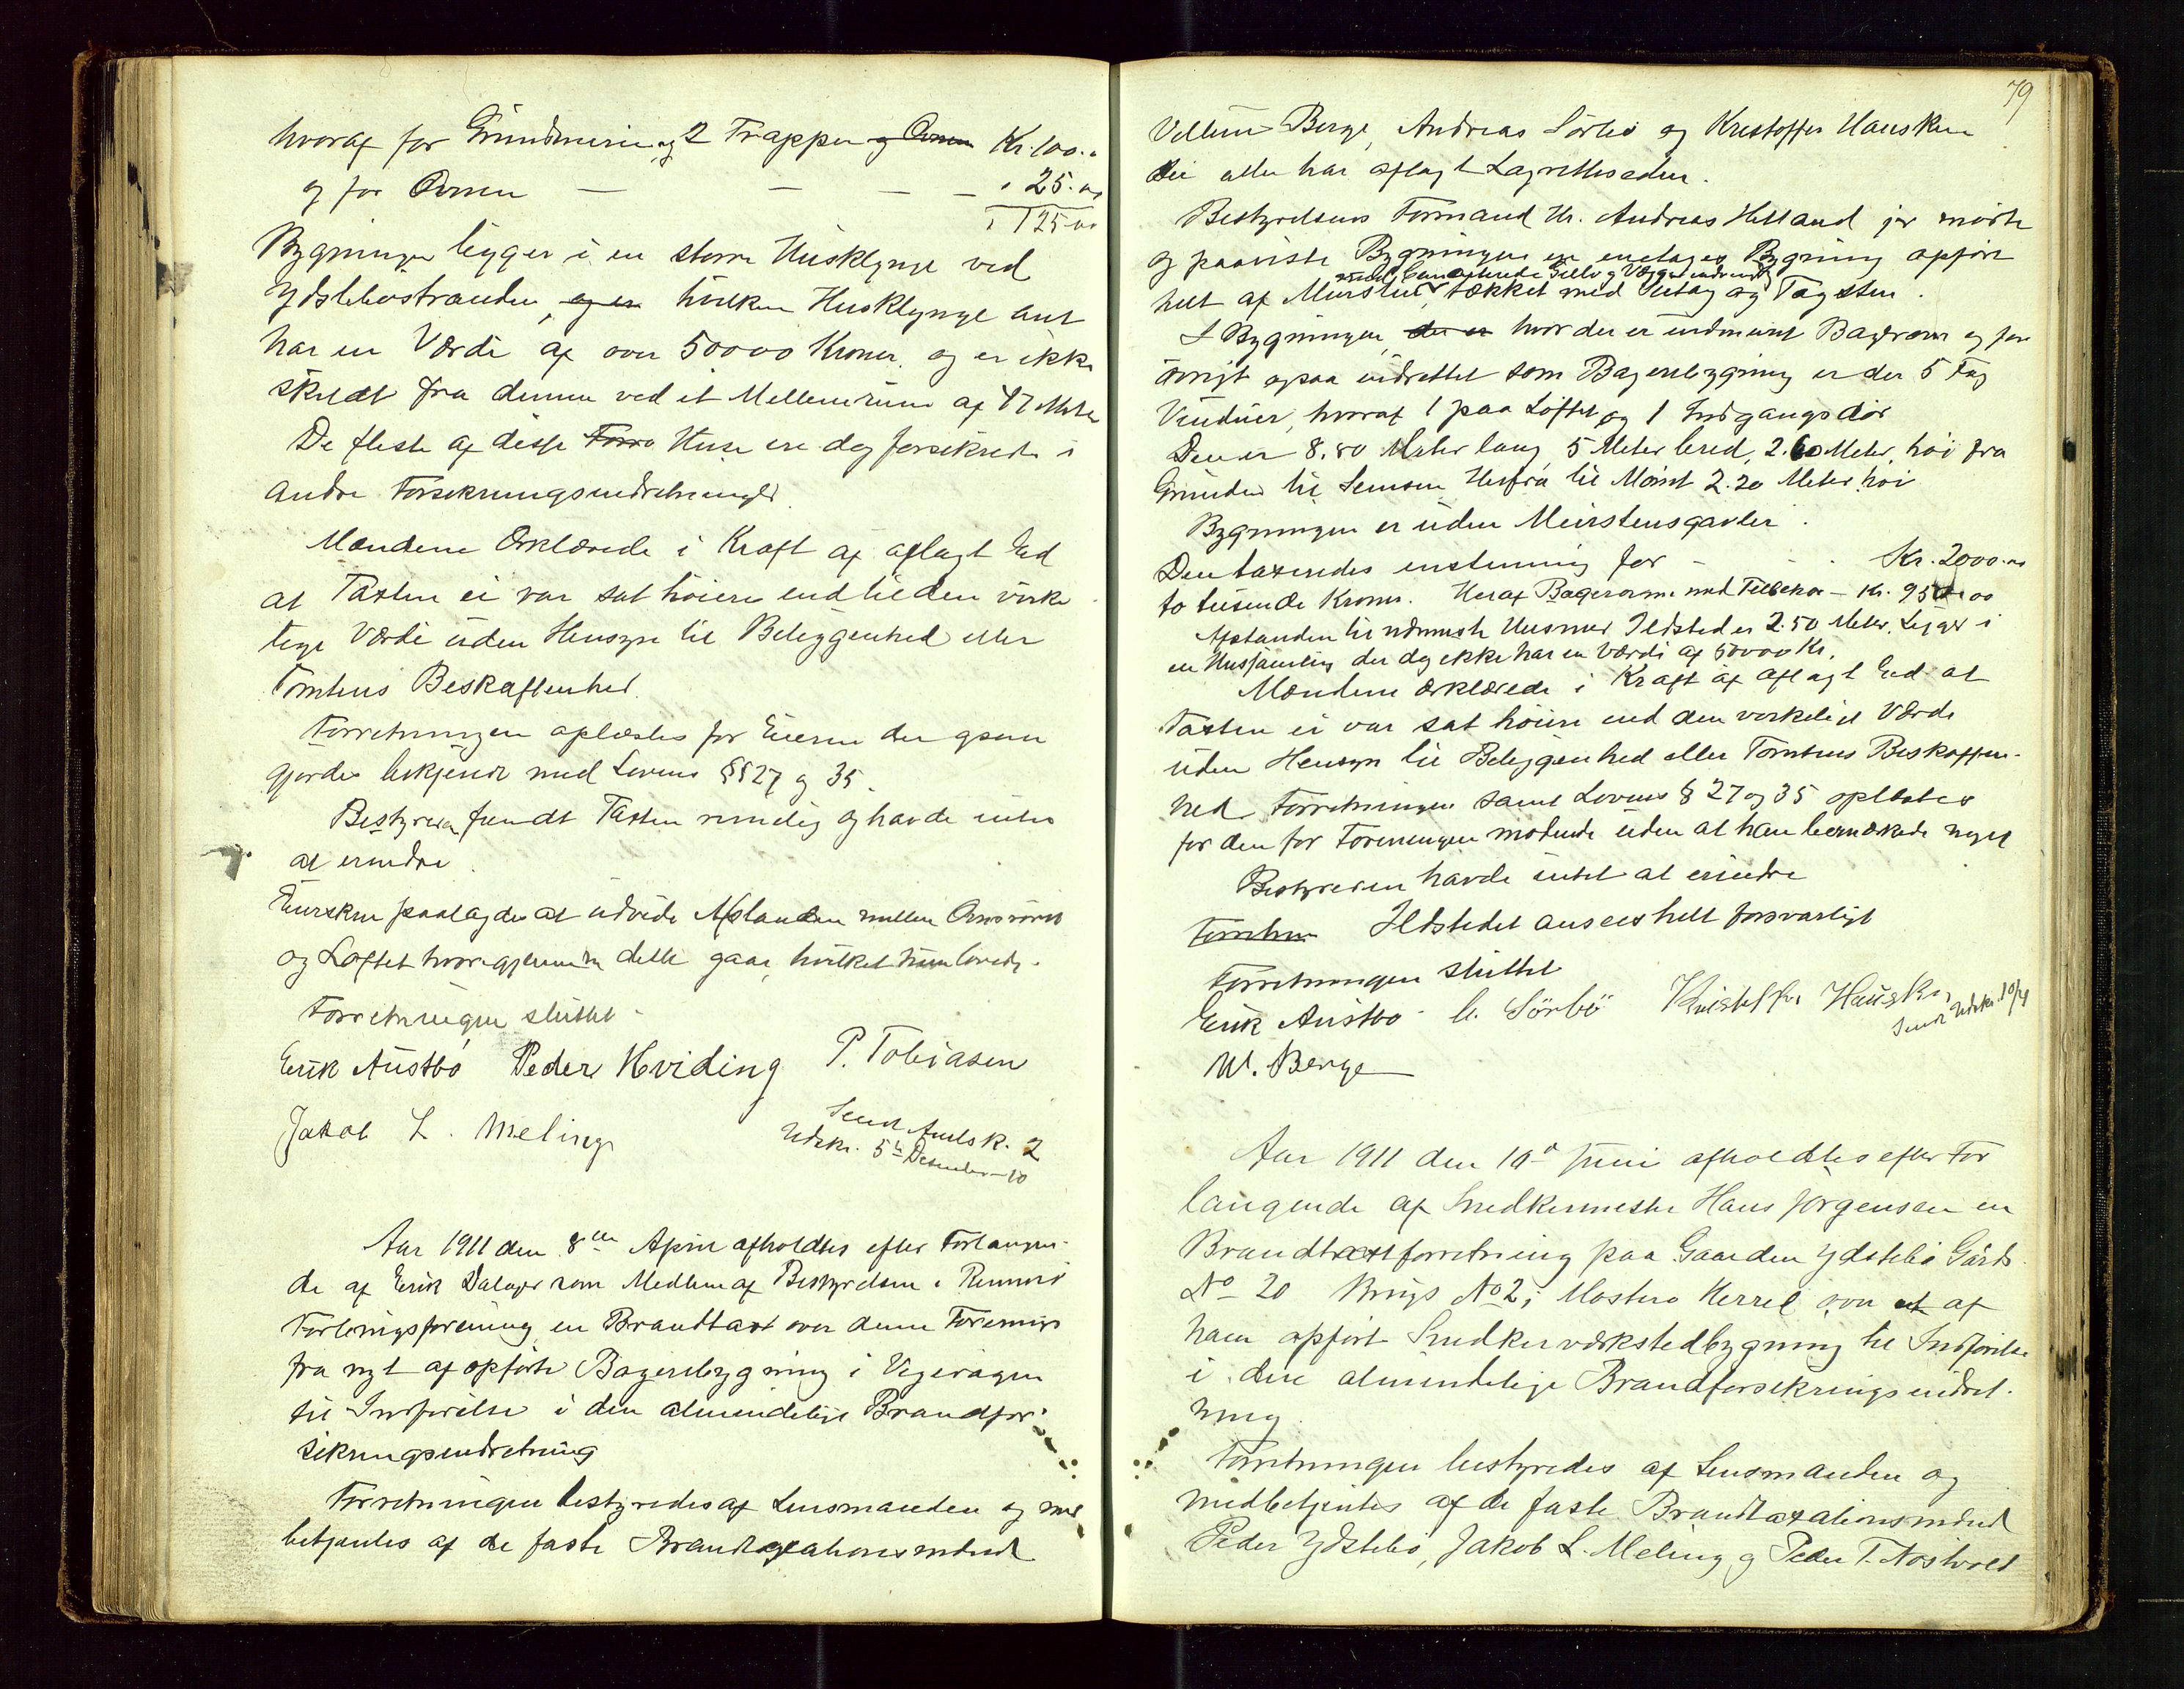 hvoraf for Grundmuren og 2 Trapper og Ovnen Kr. 100.00
og for Ovnen — — — — " 25.00
" 125.00
Bygningen ligger i en større Husklynge ved
Ydstebøstranden, og er hvilken Husklynge ant
har en Værdi af over 50000 Kroner og er ikke
skildt fra denne ved et Mellemrum af 47 Meter
De fleste af disse Forra Huse ere dog forsikrede i
andre Forsikringsindretninger.
Mændene erklærede i Kraft af aflagt Ed
at Taxten ei var sat høiere end til den virke
lige Værdi uden Hensyn til Beliggenhed eller
Tomtens Beskaffenhed.
Forretningen oplæstes for Eieren der ogsaa
gjordes bekjendt med Lovens §§ 27 og 35.
Bestyreren fandt Taxten rimelig og havde intet
at erindre.
Eiersken paalagdes at udvide Afstanden mellem Ovnsrøret
og Loftet hvorigjennem dette gaar, hvilket hun lovede.
Forretningen sluttet.
Erik Austbø Peder Hviding P. Tobiasen
Jakob L. Meling
Sendt Amtsk. 2
Udskr. 5te Desember 10
Aar 1911 den 8de April afholdtes efter Forlangen-
de af Erik Dalager som Medlem af Bestyrelsen i Rennesø
Forbrugsforening en Brandtaxt over denne Forenings
fra nyt af opførte Bageribygning i Vigevaagen
til Indførelse i den almindelige Brandfor-
sikringsindretning
Forretningen bestyredes af Lensmanden og med
betjentes af de faste Brandtaxationsmænd
79
Vellum Berge, Andreas Sørbø og Kristoffer Hausken
der alle har aflagt Lagretteseden.
Bestyrelsens Formand Hr. Andreas Helland jr mødte
og paaviste Bygningen en enetages Bygning opført
med cementerede Gulv og Vægge indvendig
helt af Mursten, tækket med Sutag og Tagsten.
I Bygningen, der er hvor der er indmuret Bagerovn og for
øvrigt ogsaa indrettet som Bageribygning er der 5 Fag
Vinduer, hvoraf 1 paa Loftet og 1 Indgangsdør
Den er 8.80 Meter lang 5 Meter bred, 2.60 Meter høi fra
Grunden til Gemsen Herfra til Mønet 2.20 Meter høi
Bygningen er uden Murstensgavler.
Den taxeredes enstemmig for — . Kr. 2000.00
to tusende Kroner. Heraf Bagerovn med Tilbehør — Kr. 950.00
Afstanden til nærmeste Hus med Ildsted er 2.50 Meter. Ligger i
en Hussamling der dog ikke har en Værdi af 50000 Kr.
Mændene erklærede i Kraft af aflagt Ed at
Taxten ei var sat høiere end den virkelige Værdi
uden Hensyn til Beliggenhed eller Tomtens Beskaffen-
hed Forretningen samt Lovens § 27 og 35 oplæstes
for den for Foreningen mødende uden at han bemærkede noget
Bestyreren havde intet at erindre
Forretn Ildstedet ansees helt forsvarligt
Forretningen sluttet
Erik Austbø A. Sørbö Kristoffer Hausken
Sendt Udskr. 10/4
W. Berge
Aar 1911 den 10de Juni afholdtes efter For
langende af Snedkermester Hans Jørgensen en
Brandtaxtforretning paa Gaarden Ydstebø Gårds
No 20 Brugs No 2 i Mosterø Herred over et af
ham opført Snedkerværkstedbygning til Indførelse
i den almindelige Brandforsikringsindret-
ning.
Forretningen bestyredes af Lensmanden og
medbetjentes af de faste Brandtaxationsmænd
Peder Ydstebø, Jakob L. Meling og Peder T. Nostvold